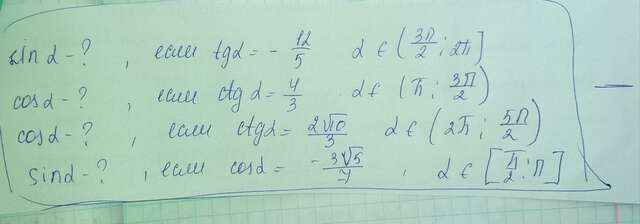 sin α - ? , если tg α = - 12/5 α ∈ (3π/2 ; 2π]
cos α - ? , если ctg α = 4/3 α ∈ (π ; 3π/2)
cos α - ? , если ctg α = 2√10/3 α ∈ (2π ; 5π/2)
sin α - ? , если cos α = - 3√5/7 , α ∈ [π/2 ; π]